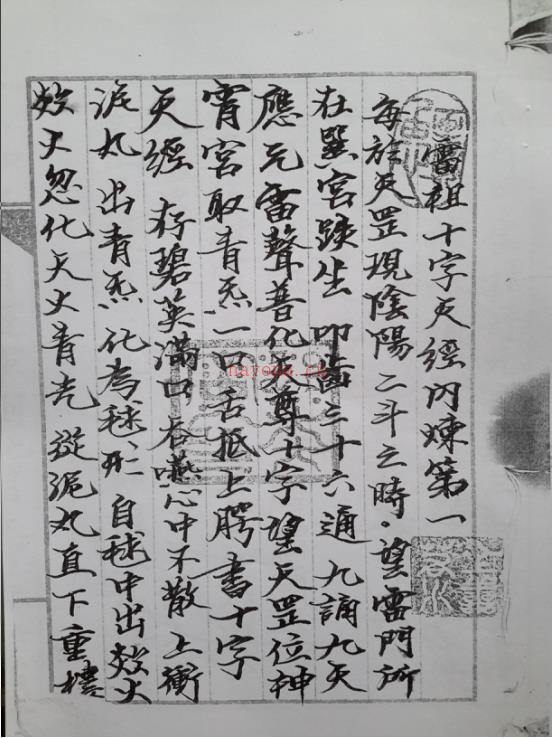 雷祖十字天經內煉第一
每於天罡現陰陽二斗之時。望雷門所
在巽宮趺坐 叩齒三十六通 九誦九天
應元雷聲普化天尊十字望天罡位神
霄宮取青炁一口舌抵上腭 書十字
天經 存碧英滿口吞嚥心中不散上衝
泥丸 出青炁化為毬形 自毬中出欻火
欻火忽化天火青光 從泥丸直下重樓
nayona.cn